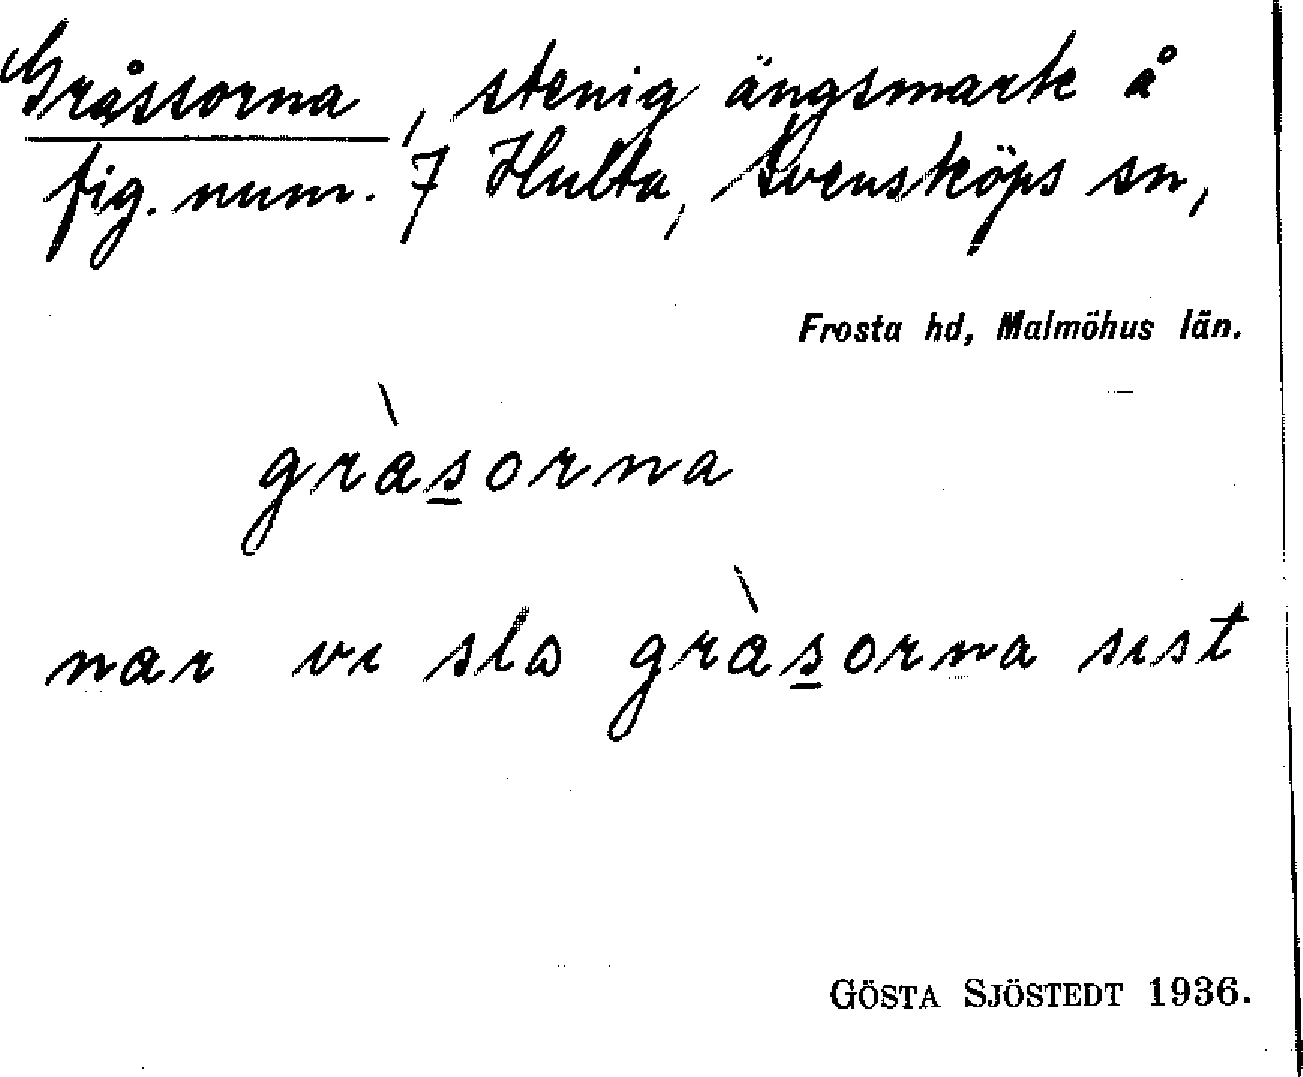 Gråssorna, stenig ängsmark å
fig. num. 7 Hulta, Svensköps sn,
Frosta hd, Malmöhus län.
gràs̲orna
nar vı sla gràs̲orna sıst
GÖSTA SJÖSTEDT 1936.